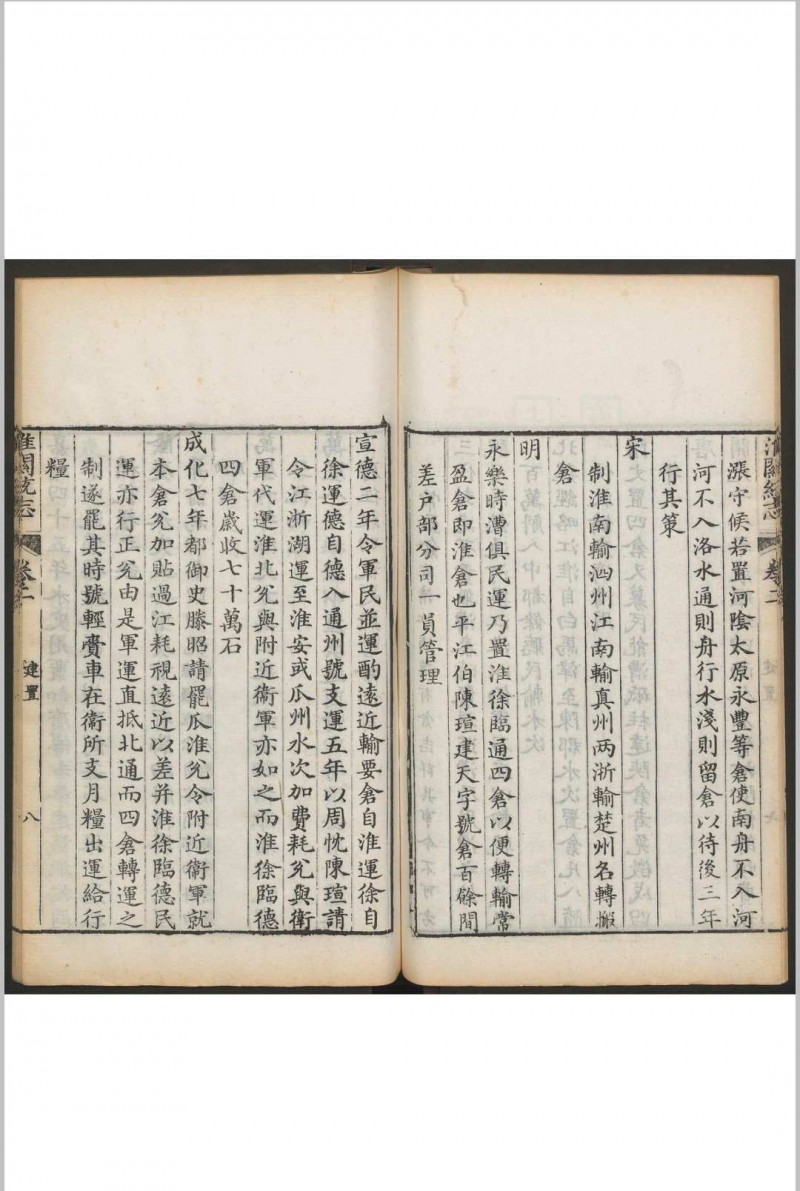 漲守候若置河陰太原永豐等倉使南舟不入河
河不入洛水通則舟行水淺則留倉以待後三年
行其策
宋
制淮南輸泗州江南輸真州兩浙輸楚州名轉搬
倉
明
永樂時漕俱民運乃置淮徐臨通四倉以便轉輸常
盈倉即淮倉也平江伯陳瑄建天字號倉百餘間
差户部分司一員管理
宣德二年令軍民並運酌遠近輸要倉自淮運徐自
徐運德自德入通州號支運五年以周忱陳瑄請
令江浙湖運至淮安或瓜州水次加費耗兊與衛
軍代運淮北兊與附近衛軍亦如之而淮徐臨德
四倉歲收七十萬石
成化七年都御史滕昭請罷瓜淮兊令附近衛軍就
本倉兊加貼過江耗視遠近以差并淮徐臨德民
運亦行正兊由是軍運直抵北通而四倉轉運之
制遂罷其時號輕賫車在衛所支月糧出運給行
糧
淮關統志 卷二 建置 八